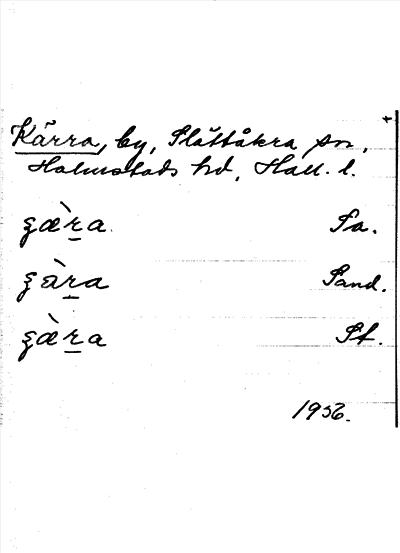 Kärra, by, Slättåkra sn,
Halmstads hd, Hall. l.
ʒæ̀r̲a Sa.
ʒàr̲a Sand.
ʒæ̀r̲a St.
1936.